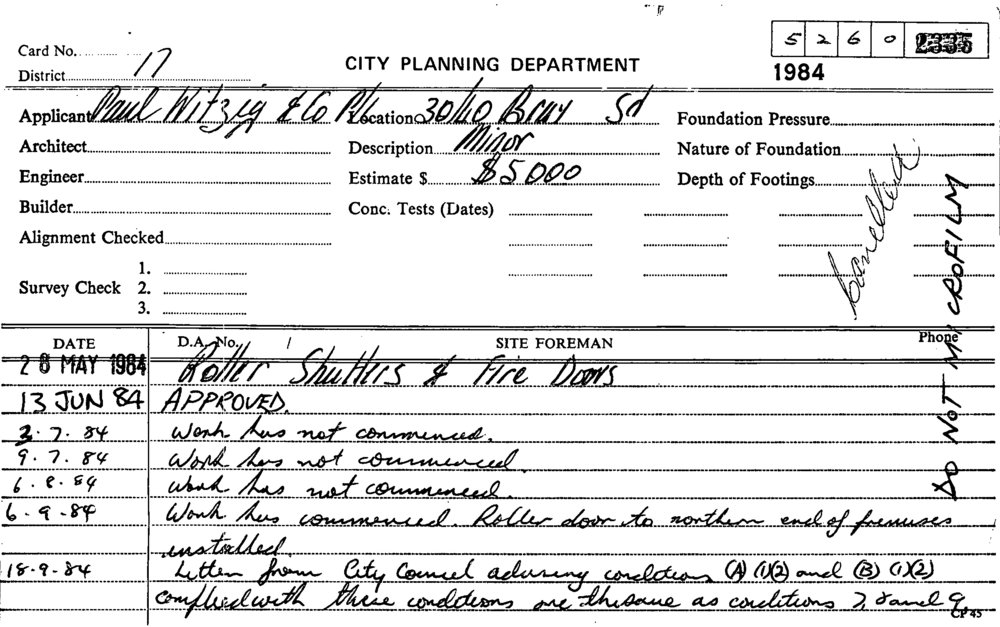 5 2 6 0
Card No. 17
District
CITY PLANNING DEPARTMENT
1984
Applicant Paul Witzig & Co P/L Location 30/40 Bray Sd Foundation Pressure
Architect Description Minor Nature of Foundation
Engineer Estimate $ $5000 Depth of Footings
Builder Conc. Tests (Dates)
Alignment Checked
1.
Survey Check 2.
3.
Cancelled
DO NOT MICROFILM
DATE D.A. No. / SITE FOREMAN Phone
28 MAY 1984 Roller Shutters & Fire Doors
13 JUN 84 APPROVED.
3.7.84 Work has not commenced.
9.7.84 Work has not commenced
6.8.84 Work has not commenced.
6.9.84 Work has commenced. Roller door to northern end of premises
installed.
18.9.84 Letter from City Council advising conditions (A) (1)(2) and (B) (1)(2)
complied with these conditions are the same as conditions 7, 8 and 9.
CP 45